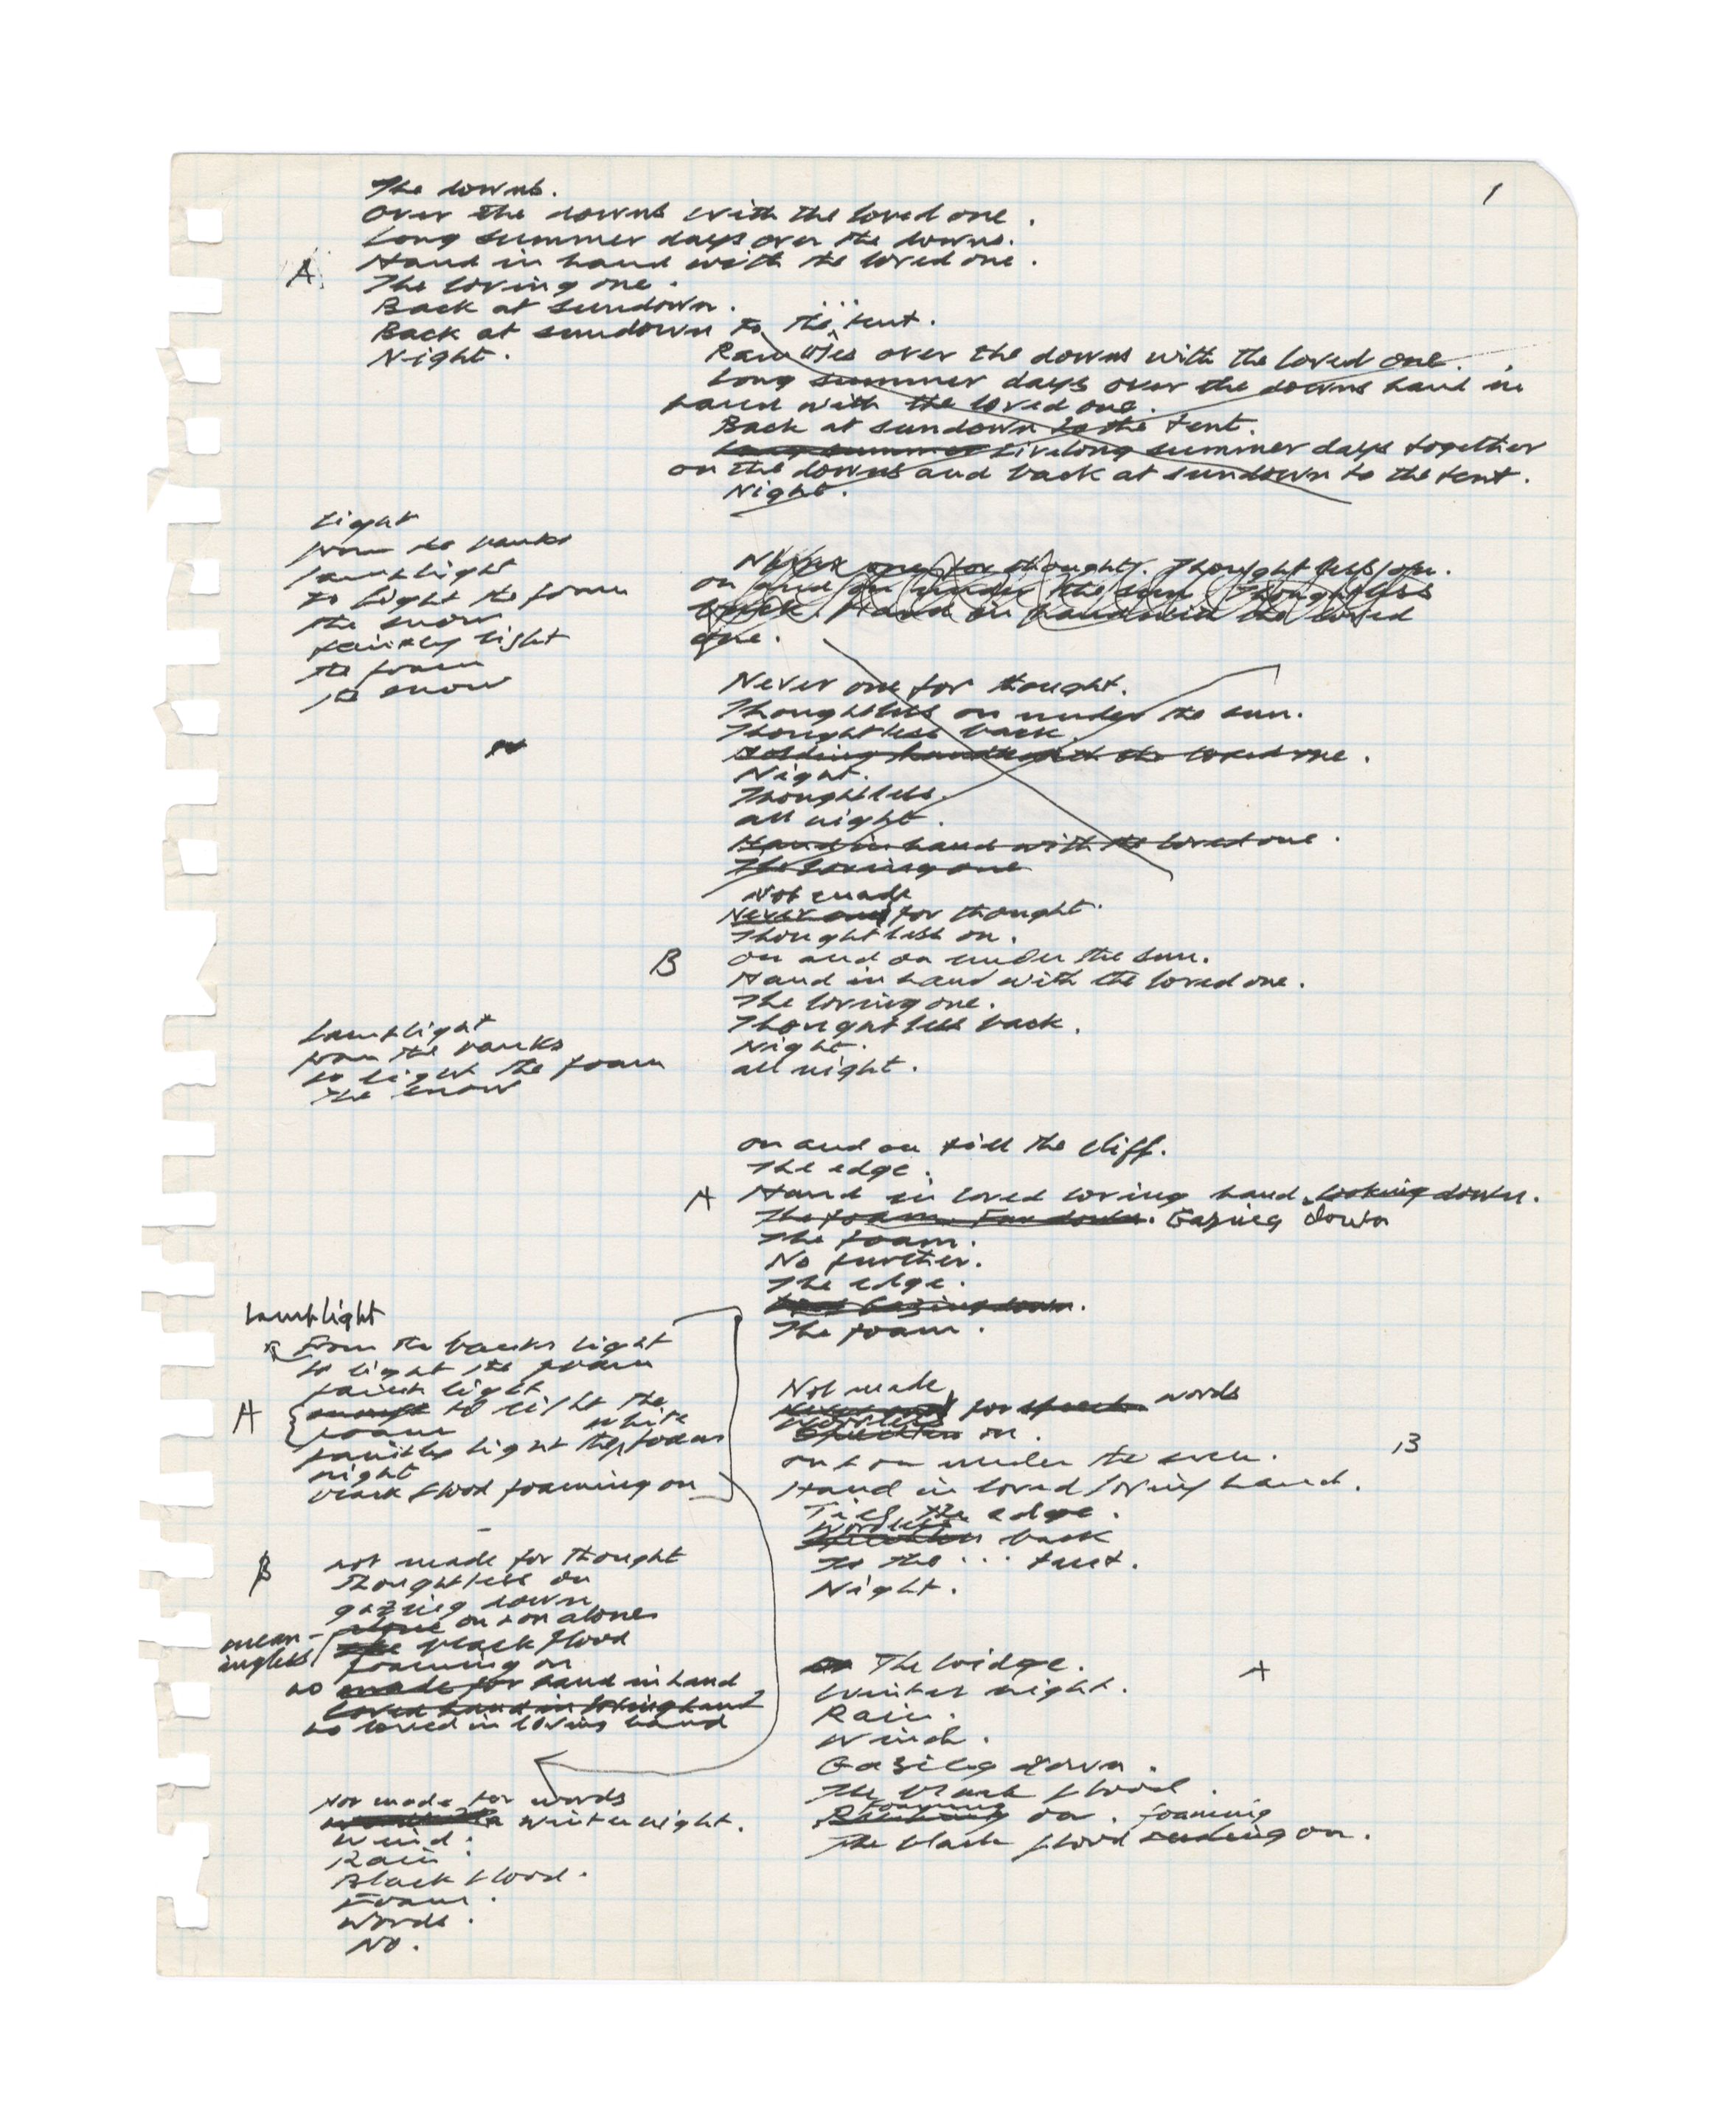 1
The downs.
Over the downs with the loved one.
Long summer days over the downs.
A.
Hand in hand with the loved one.
The loving one.
Back at sundown.
Back at sundown to the ... tent.
Night.
over the downs with the loved one.
Long summer days over the downs hand in
hand with the loved one.
Back at sundown to the tent.
Long summer Livelong summer days together
on the downs and back at sundown to the tent.
Night.
Never one for thought. Thoughtless on.
on and on under the sun. Thoughtless
back. Hand in hand with the loved
one.
Never one for thought.
Thoughtless on under the sun.
Thoughtless back.
Holding hands with the loved one.
Night.
Thoughtless.
all night.
Hand in hand with the loved one.
The loving one
Not made
Never one for thought.
Thoughtless on.
B
on and on under the sun.
Hand in hand with the loved one.
The loving one.
Thoughtless back.
Night.
all night.
on and on till the cliff.
The edge.
A
Hand in loved loving hand. looking down.
The foam. Far down. Gazing down
The foam.
No further.
The edge.
Gazing down.
The foam.
Not made
Never one for speech words
wordless
on.
B
on + on under the sun.
Hand in loved loving hand.
Till the edge.
wordless
back
to the ... tent.
Night.
The bridge.
A
Winter night.
Rain.
Wind.
Gazing down.
The black flood.
foaming
on. foaming
The black flood on.
light
from the banks
lamplight
to light the foam
the snow
faintly light
the foam
the snow
Lamplight
from the banks
to light the foam
the snow
Lamplight
From the banks light
to light the foam
faint light
A
enough to light the
foam white
faintly light the foam
night
black flood foaming on
B
not made for thought
thoughtless on
gazing down
alone on + on alone
mean-
ingless
the black flood
foaming on
no made for hand in hand
loved hand in loving hand
no loved in loving hand
Not made for words
winter night.
Wind.
Rain.
Black flood.
Foam.
Words.
No.